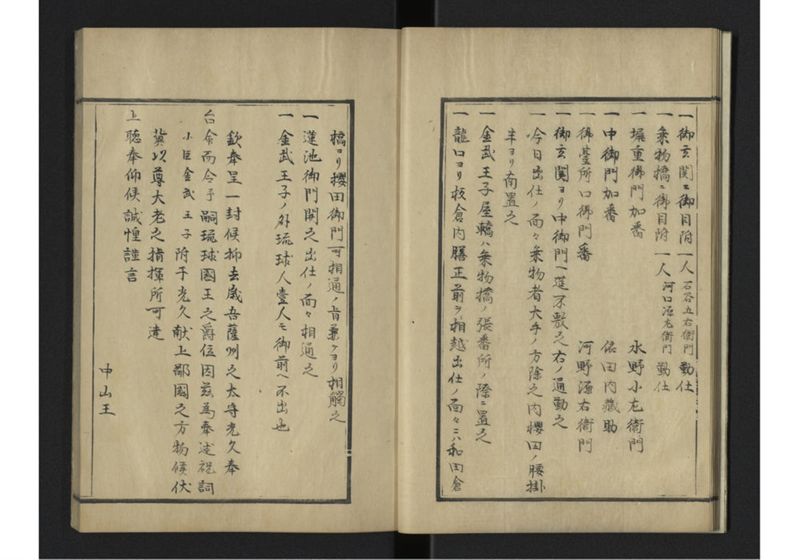 一御玄関ニ御目附一人石谷五右衛門勤仕
一乗物橋ニ御目附一人河口源左衛門勤仕
一塀重御門加番 水野小左衛門
一中御門加番 依田内蔵助
一御臺所口御門番 河野源右衛門
一御玄関ヨリ中御門一莚不敷之右ノ通勤之
一今日出仕ノ面々乗物者大手ノ方除之内櫻田ノ腰掛
半ヨリ南置之
一金武王子屋轎ハ乗物橋ノ張番所ノ際ニ置之
一龍口ヨリ板倉内膳正前ヲ相越出仕ノ面々ハ和田倉
橋ヨリ櫻田御門可相通ノ旨兼ヶヨリ相觸之
一蓮池御門開之出仕ノ面々相通之
一金武王子ノ外琉球人壹人モ御前ヘ不出也
欽奉呈一封候抑去歳吾薩州之太守光久奉
台命而令予嗣琉球國王之爵位因茲為奉述祝詞
小臣金武王子附于光久献上鄙國之方物候伏
冀以尊大老之指揮所可達
上聴奉仰候誠惶謹言
中山王